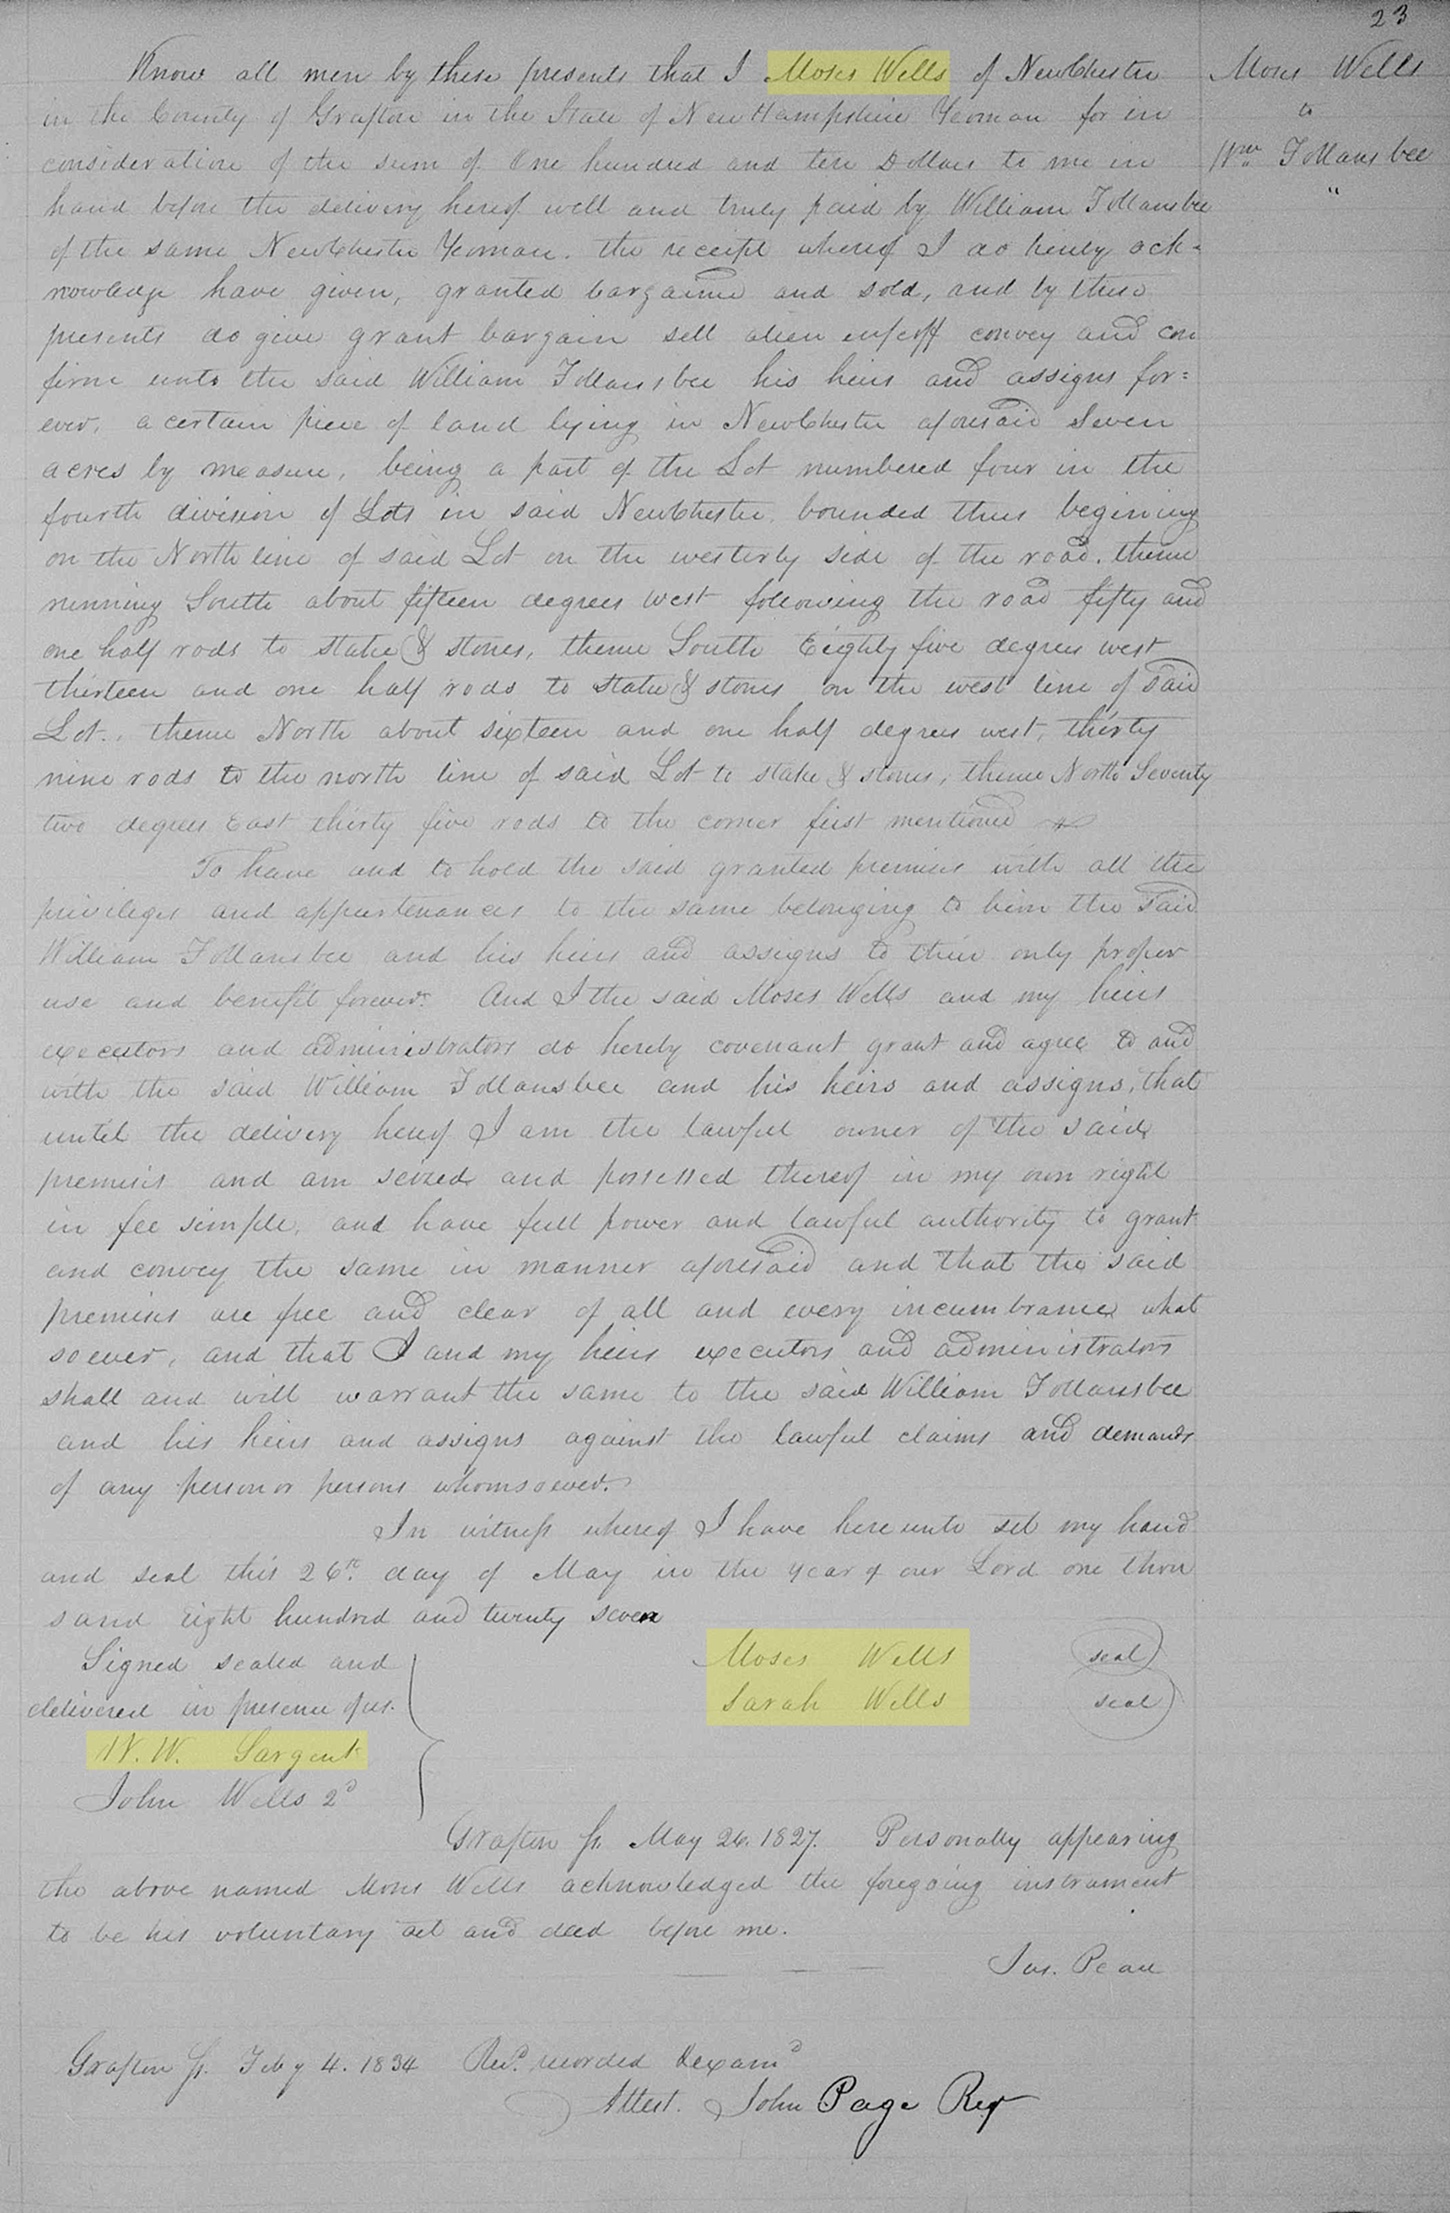 23
Know all men by these presents that I Moses Wells of NewChester
in the County of Grafton in the State of New Hampshire Yeoman for in
consideration of the sum of One hundred and ten Dollars to me in
hand before the delivery hereof well and truly paid by William Follansbee
of the same NewChester Yeoman. the receipt whereof I do hereby ack=
nowledge have given, granted bargained and sold, and by these
presents do give grant bargain sell alien enfeoff convey and con
firm unto the said William Follansbee his heirs and assigns for=
ever, a certain piece of land lying in NewChester aforesaid Seven
acres by measure, being a part of the Lot numbered four in the
fourth division of Lots in said NewChester, bounded thus begining
on the North line of said Lot on the westerly side of the road, thence
running South about fifteen degrees west following the road fifty and
one half rods to stake & stones, thence South Eighty five degrees west
thirteen and one half rods to stake & stones on the west line of said
Lot., thence North about sixteen and one half degrees west, thirty
nine rods to the north line of said Lot to stake & stones, thence North Seventy
two degrees East thirty five rods to the corner first mentioned
To have and to hold the said granted premises with all the
privileges and appurtenances to the same belonging to him the said
William Follansbee and his heirs and assigns to their only proper
use and benefit forever. And I the said Moses Wells and my heirs
executors and administrators do hereby covenant grant and agree to and
with the said William Follansbee and his heirs and assigns, that
until the delivery hereof I am the lawful owner of the said
premises and am seized and possessed thereof in my own right
in fee simple, and have full power and lawful authority to grant
and convey the same in manner aforesaid and that the said
premises are free and clear of all and every incumbrances what
soever, and that I and my heirs executors and administrators
shall and will warrant the same to the said William Follansbee
and his heirs and assigns against the lawful claims and demands
of any person or persons whomsoever.
In witness whereof I have hereunto set my hand
and seal this 26th day of May in the year of our Lord one thou
sand eight hundred and twenty seven
Signed sealed and
delivered in presence of us.
W. W. Sargent
John Wells 2d
Moses Wells seal
Sarah Wells seal
Grafton Ss. May 26. 1827. Personally appearing
the above named Moses Wells acknowledged the foregoing instrument
to be his voluntary act and deed before me.
Jus. Peace
Grafton Ss. Feby 4. 1834 Recd. recorded & examd
Attest. John Page Regr
Moses Wells
to
Wm Follansbee
"